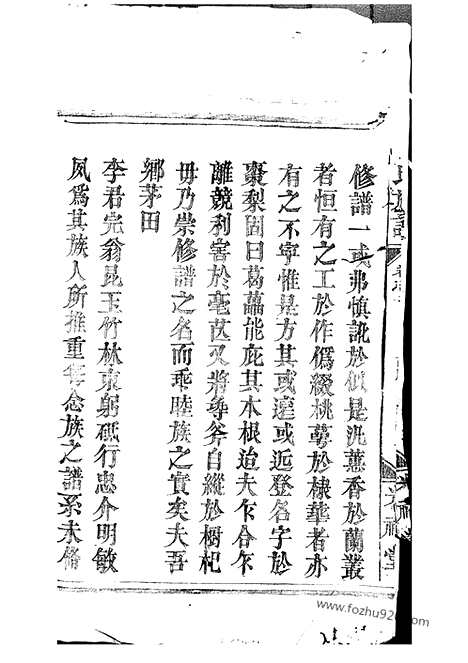 修譜一或弗慎訛於似是汎蕙香於蘭叢
者恒有之工於作偽綴桃萼於棣華者亦
有之不寧惟是方其或達或近登名字於
棗梨固曰葛藟能庇其本根迨夫乍合乍
離競利害於毫芒又將尋斧自縱於樹杞
毋乃崇修譜之名而乖睦族之實矣夫吾
鄉茅田
李君完翁昆玉竹林束躬砥行忠介明敏
夙為其族人所推重每念族之譜系未脩
www.fozhu920.com